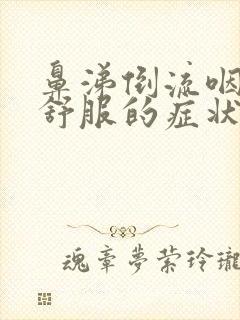 鼻涕倒流咽
舒服的症状
魂牵梦萦玲瓏